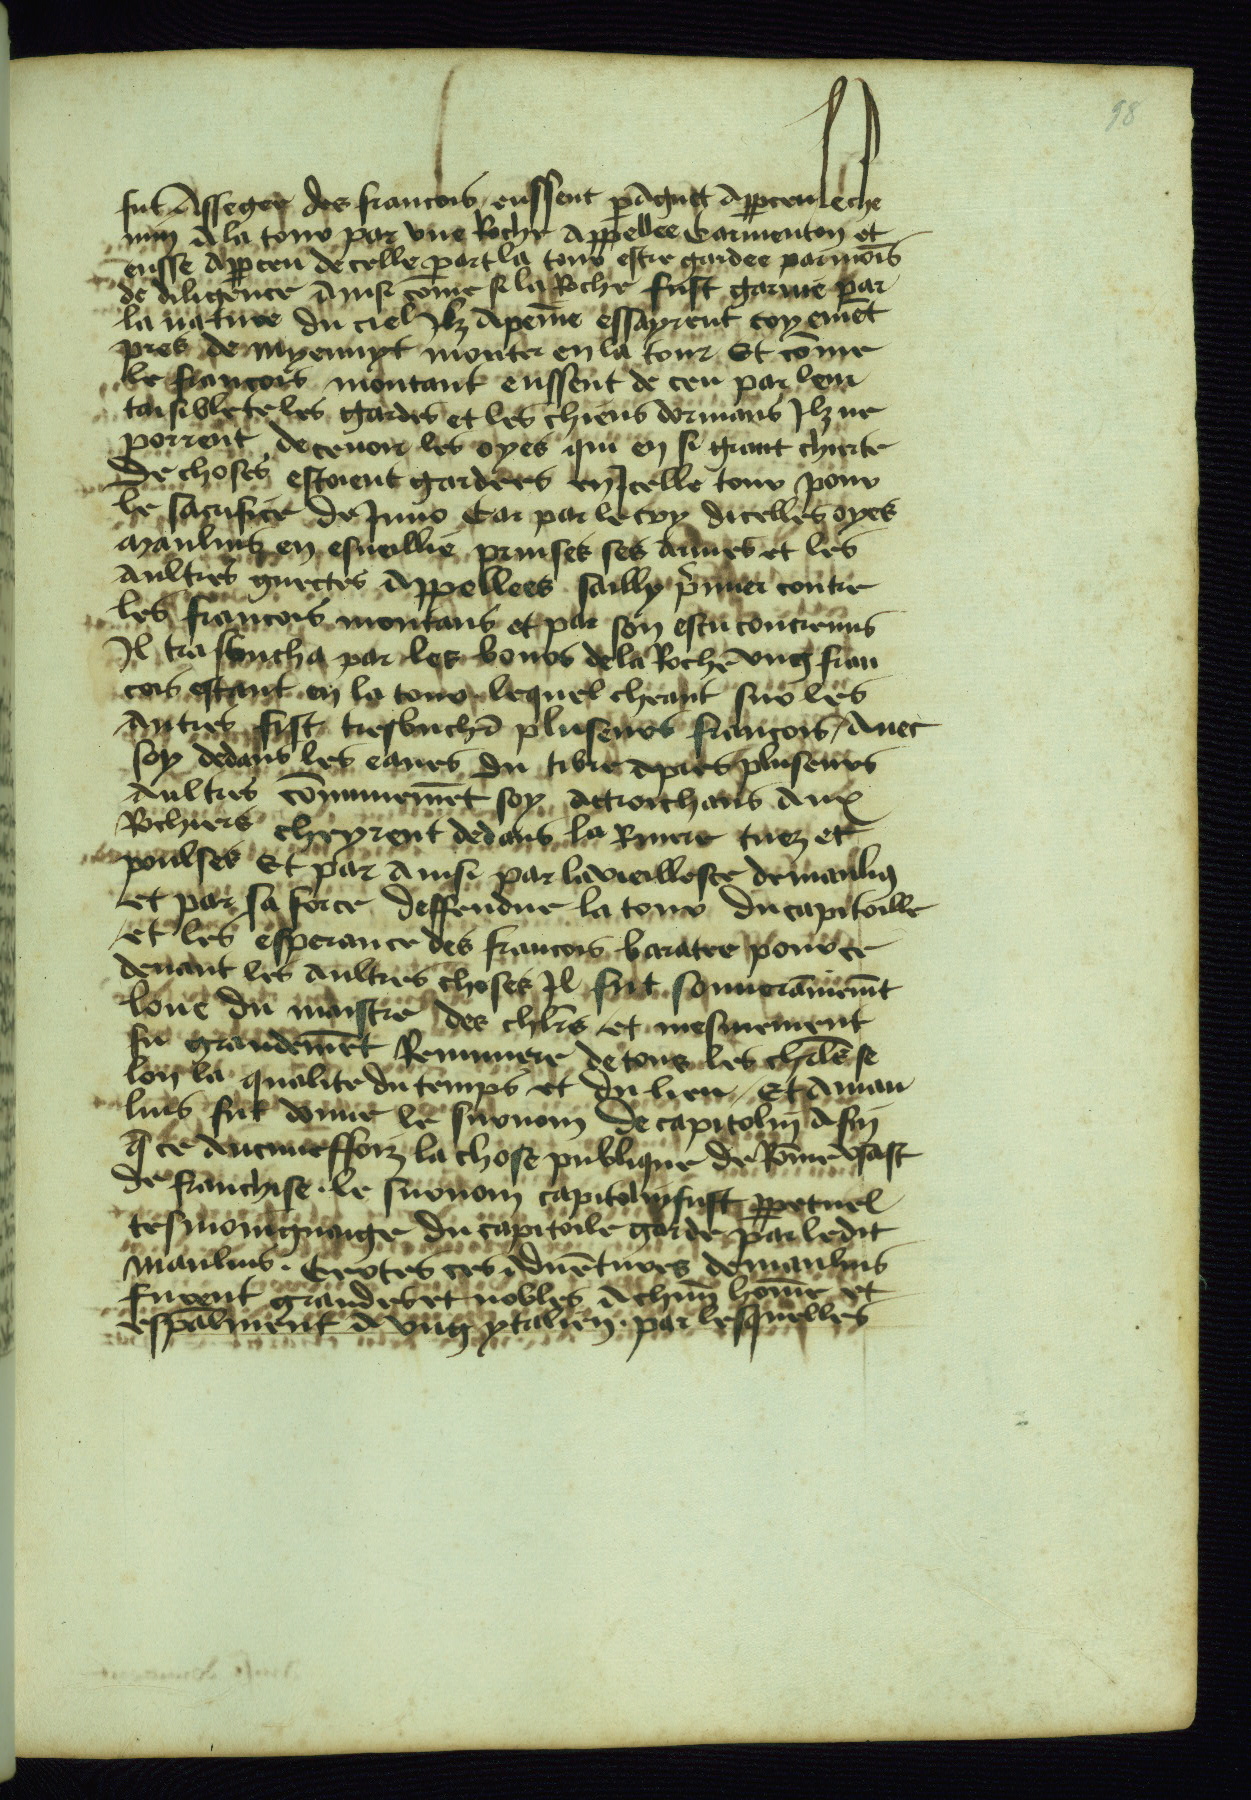 98
fut Assegee des francois eussent p Aguet Apperceu le che
min A la tour par vne Roche Appellee Carmenton et
eusse Apperceu de celle part la tour estre gardee par mois̄
de diligence Ainsi cōme si la Roche fust garnie par
la nature du ciel Ilz Apeine essayrent coyemēt
pres de myenuyt monter en la tour Et cōme
le francois montant eussent deceu par leur
taisiblete les gardes et les chiens dormans Ilz ne
porrent decevoir les oyes qui en si grant chierte
De choses estoient gardees en Icelle tour pour
le sacrifice de Juno Car par le cry dicelles oyes
Manlius en esueillie prinses ses Armes et les
Aultres guectes Appellees sailly p̄mier contre
les francois montans et par son escu
Il trasbucha par les bours de la Roche vng fran
cois estant en la tour lequel cheant sur les
Autres fist tresbuchr̄ pluseurs francois / Auec
soy dedans les eaues du tibre Apres pluseurs
Aultres cōmunemēt soy Aux
Rochiers cheyrent dedans la Riuiere tuez et
poulses Et par Ainsi par la vieillesce de manli9
et par sa force deffendue la tour du capitoille
et les esperance des francois baratee pour ce
deuant les Aultres choses Il fut souuerāinemēt
loue du maistre des chl̄rs et mesmement
fu grandemēt Remunere de tous les chl̄rs se
lon la qualite du temps et du lieu / Et A man
lius fut donne le surnom de capitolin Afin
q̄ ce la chose publique de Rōme vsast
de franchise . le surnom capitolin fust ppetuel
tesmoingnaige du capitoile garde par ledit
Manlius . Certes ces Aduētures de manlius
furent grandes et nobles A chūn hōme et
esp̄alment A vng ytalien . par lesquelles